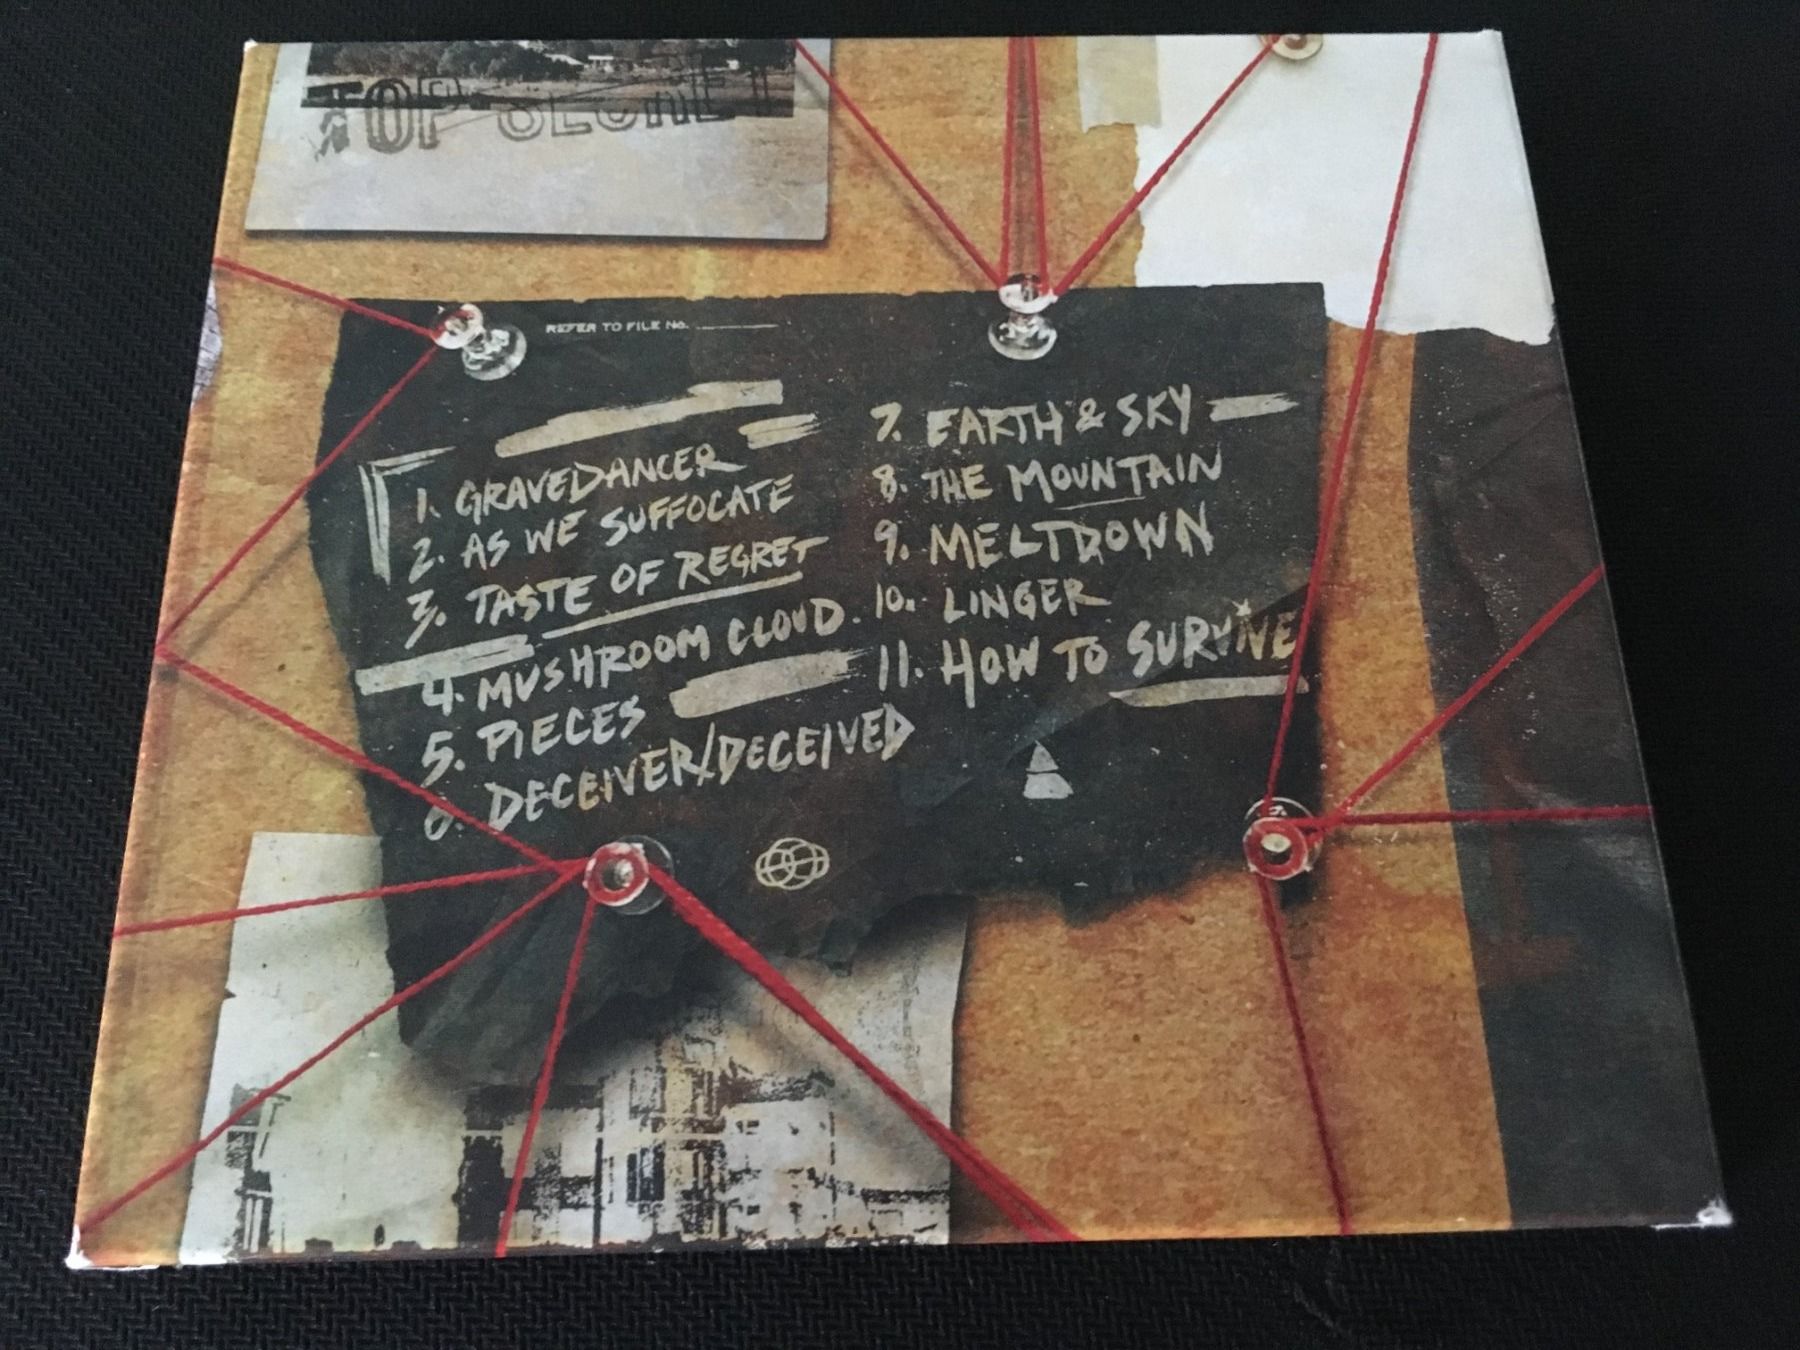 TOP SECRET
REFER TO FILE NO.
1. GRAVEDANCER
2. AS WE SUFFOCATE
3. TASTE OF REGRET
4. MUSHROOM CLOUD
5. PIECES
6. DECEIVER/DECEIVED
7. EARTH & SKY
8. THE MOUNTAIN
9. MELTDOWN
10. LINGER
11. HOW TO SURVIVE